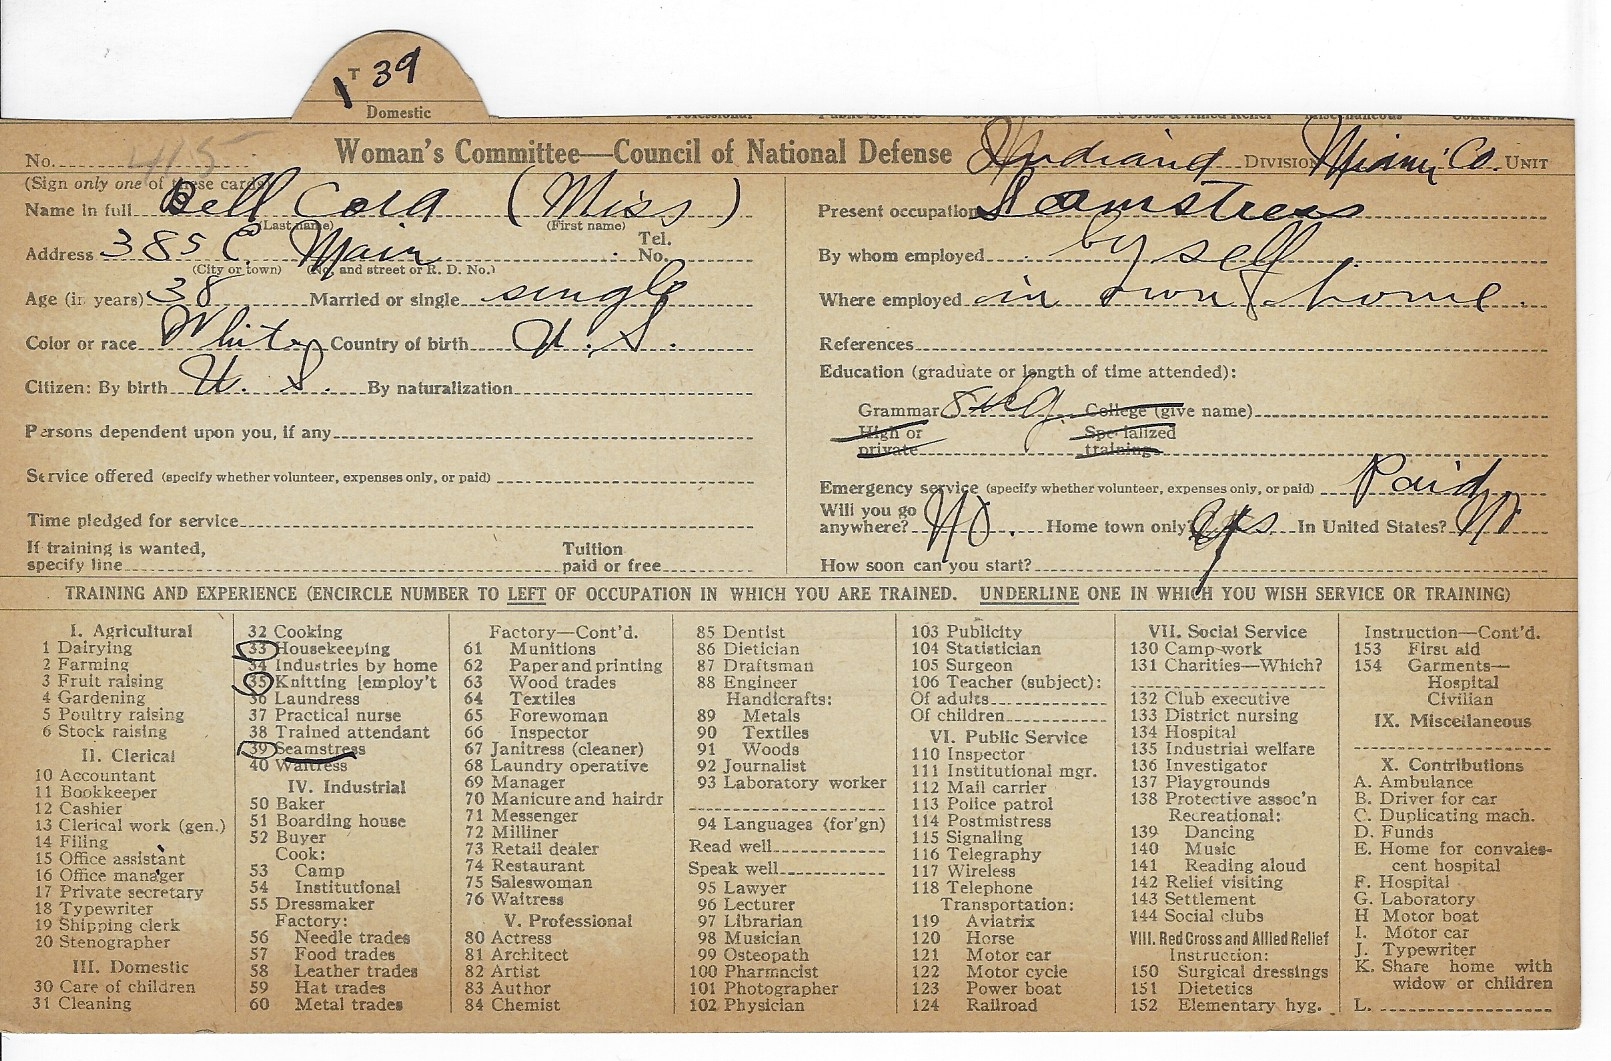 T 39
Domestic
No. 415 Woman's Committee—Council of National Defense Indiana DIVISION Miami Co. UNIT
(Sign only one of these cards)
Name in full Bell Cora (Miss)
(Last name) (First name)
Address 385 E. Main Tel. No.
(City or town) (No. and street or R. D. No.)
Age (in years) 38 Married or single single
Color or race White Country of birth U. S.
Citizen: By birth U. S. By naturalization
Persons dependent upon you, if any
Service offered (specify whether volunteer, expenses only, or paid)
Time pledged for service
If training is wanted, specify line Tuition paid or free
Present occupation Seamstress
By whom employed by self
Where employed in own home.
References
Education (graduate or length of time attended):
Grammar 8th g. College (give name)
High or private Specialized training
Emergency service (specify whether volunteer, expenses only, or paid) Paid
Will you go anywhere? No. Home town only? Yes. In United States? No
How soon can you start?
TRAINING AND EXPERIENCE (ENCIRCLE NUMBER TO LEFT OF OCCUPATION IN WHICH YOU ARE TRAINED. UNDERLINE ONE IN WHICH YOU WISH SERVICE OR TRAINING)
I. Agricultural
1 Dairying
2 Farming
3 Fruit raising
4 Gardening
5 Poultry raising
6 Stock raising
II. Clerical
10 Accountant
11 Bookkeeper
12 Cashier
13 Clerical work (gen.)
14 Filing
15 Office assistant
16 Office manager
17 Private secretary
18 Typewriter
19 Shipping clerk
20 Stenographer
III. Domestic
30 Care of children
31 Cleaning
32 Cooking
33 Housekeeping
34 Industries by home
35 Knitting [employ't
36 Laundress
37 Practical nurse
38 Trained attendant
39 Seamstress
40 Waitress
IV. Industrial
50 Baker
51 Boarding house
52 Buyer
Cook:
53 Camp
54 Institutional
55 Dressmaker
Factory:
56 Needle trades
57 Food trades
58 Leather trades
59 Hat trades
60 Metal trades
Factory—Cont'd.
61 Munitions
62 Paper and printing
63 Wood trades
64 Textiles
65 Forewoman
66 Inspector
67 Janitress (cleaner)
68 Laundry operative
69 Manager
70 Manicure and hairdr
71 Messenger
72 Milliner
73 Retail dealer
74 Restaurant
75 Saleswoman
76 Waitress
V. Professional
80 Actress
81 Architect
82 Artist
83 Author
84 Chemist
85 Dentist
86 Dietician
87 Draftsman
88 Engineer
Handicrafts:
89 Metals
90 Textiles
91 Woods
92 Journalist
93 Laboratory worker
94 Languages (for'gn)
Read well
Speak well
95 Lawyer
96 Lecturer
97 Librarian
98 Musician
99 Osteopath
100 Pharmacist
101 Photographer
102 Physician
103 Publicity
104 Statistician
105 Surgeon
106 Teacher (subject):
Of adults
Of children
VI. Public Service
110 Inspector
111 Institutional mgr.
112 Mail carrier
113 Police patrol
114 Postmistress
115 Signaling
116 Telegraphy
117 Wireless
118 Telephone
Transportation:
119 Aviatrix
120 Horse
121 Motor car
122 Motor cycle
123 Power boat
124 Railroad
VII. Social Service
130 Camp work
131 Charities—Which?
132 Club executive
133 District nursing
134 Hospital
135 Industrial welfare
136 Investigator
137 Playgrounds
138 Protective assoc'n
Recreational:
139 Dancing
140 Music
141 Reading aloud
142 Relief visiting
143 Settlement
144 Social clubs
VIII. Red Cross and Allied Relief
Instruction:
150 Surgical dressings
151 Dietetics
152 Elementary hyg.
Instruction—Cont'd.
153 First aid
154 Garments—
Hospital
Civilian
IX. Miscellaneous
X. Contributions
A. Ambulance
B. Driver for car
C. Duplicating mach.
D. Funds
E. Home for convales-
cent hospital
F. Hospital
G. Laboratory
H Motor boat
I. Motor car
J. Typewriter
K. Share home with
widow or children
L.